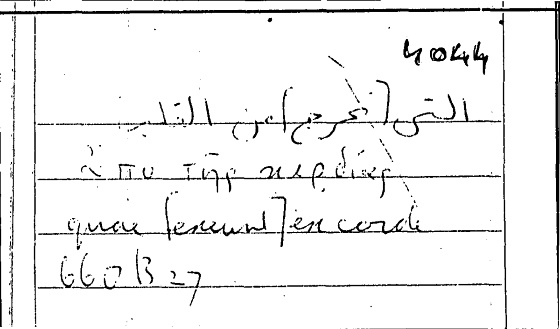 4044
التى [تخرج] من القلب
ἀπὸ τῆς καρδίας
quae [exeunt] ex corde
660 B 27